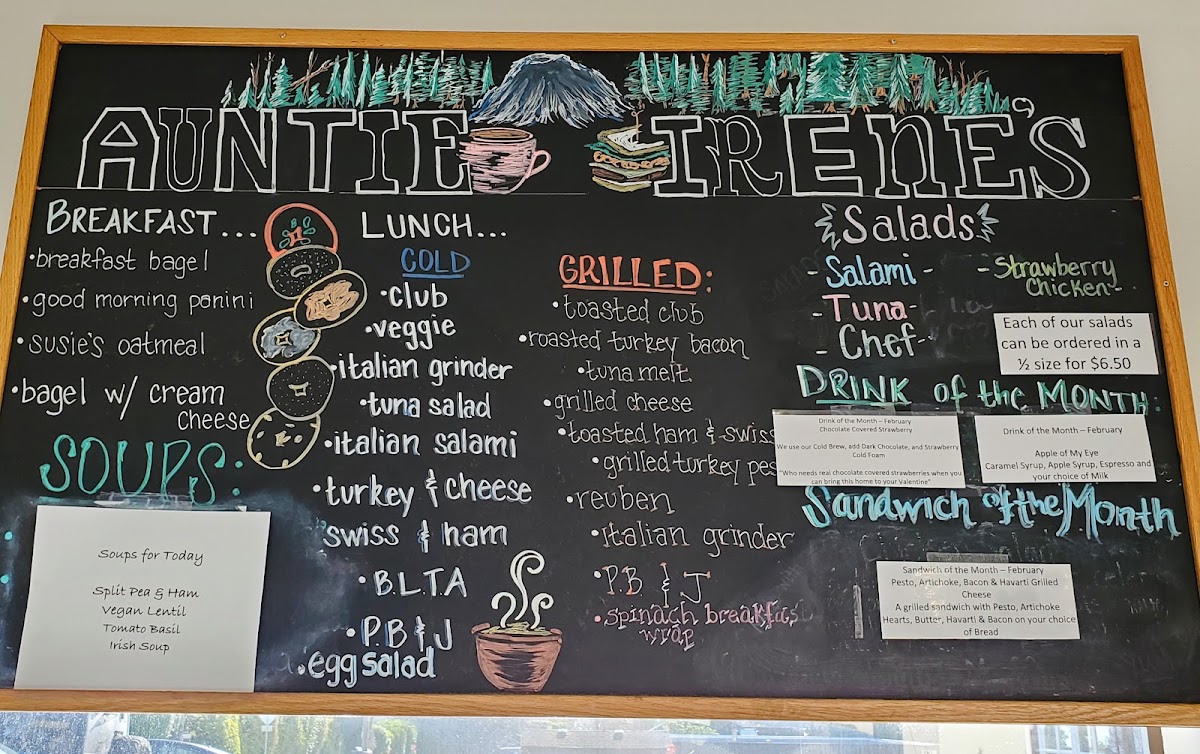 AUNTIE IRENE'S
BREAKFAST...
•breakfast bagel
•good morning panini
•susie's oatmeal
•bagel w/ cream
cheese
SOUPS:
Soups for Today
Split Pea & Ham
Vegan Lentil
Tomato Basil
Irish Soup
LUNCH...
COLD
•club
•veggie
•italian grinder
•tuna salad
•italian salami
•turkey & cheese
swiss & ham
•B.L.T.A
•PB & J
•egg salad
GRILLED:
•toasted club
•roasted turkey bacon
•tuna melt
•grilled cheese
•toasted ham & swiss
•grilled turkey pes
•reuben
•italian grinder
•P.B & J
•spinach breakfas
wrap
Salads
-Salami-
-Tuna-
-Chef-
-Strawberry
Chicken-
Each of our salads
can be ordered in a
½ size for $6.50
DRINK of the MONTH:
Drink of the Month – February
Chocolate Covered Strawberry
We use our Cold Brew, add Dark Chocolate, and Strawberry
Cold Foam
"Who needs real chocolate covered strawberries when you
can bring this home to your Valentine"
Drink of the Month – February
Apple of My Eye
Caramel Syrup, Apple Syrup, Espresso and
your choice of Milk
Sandwich of the Month
Sandwich of the Month – February
Pesto, Artichoke, Bacon & Havarti Grilled
Cheese
A grilled sandwich with Pesto, Artichoke
Hearts, Butter, Havarti & Bacon on your choice
of Bread